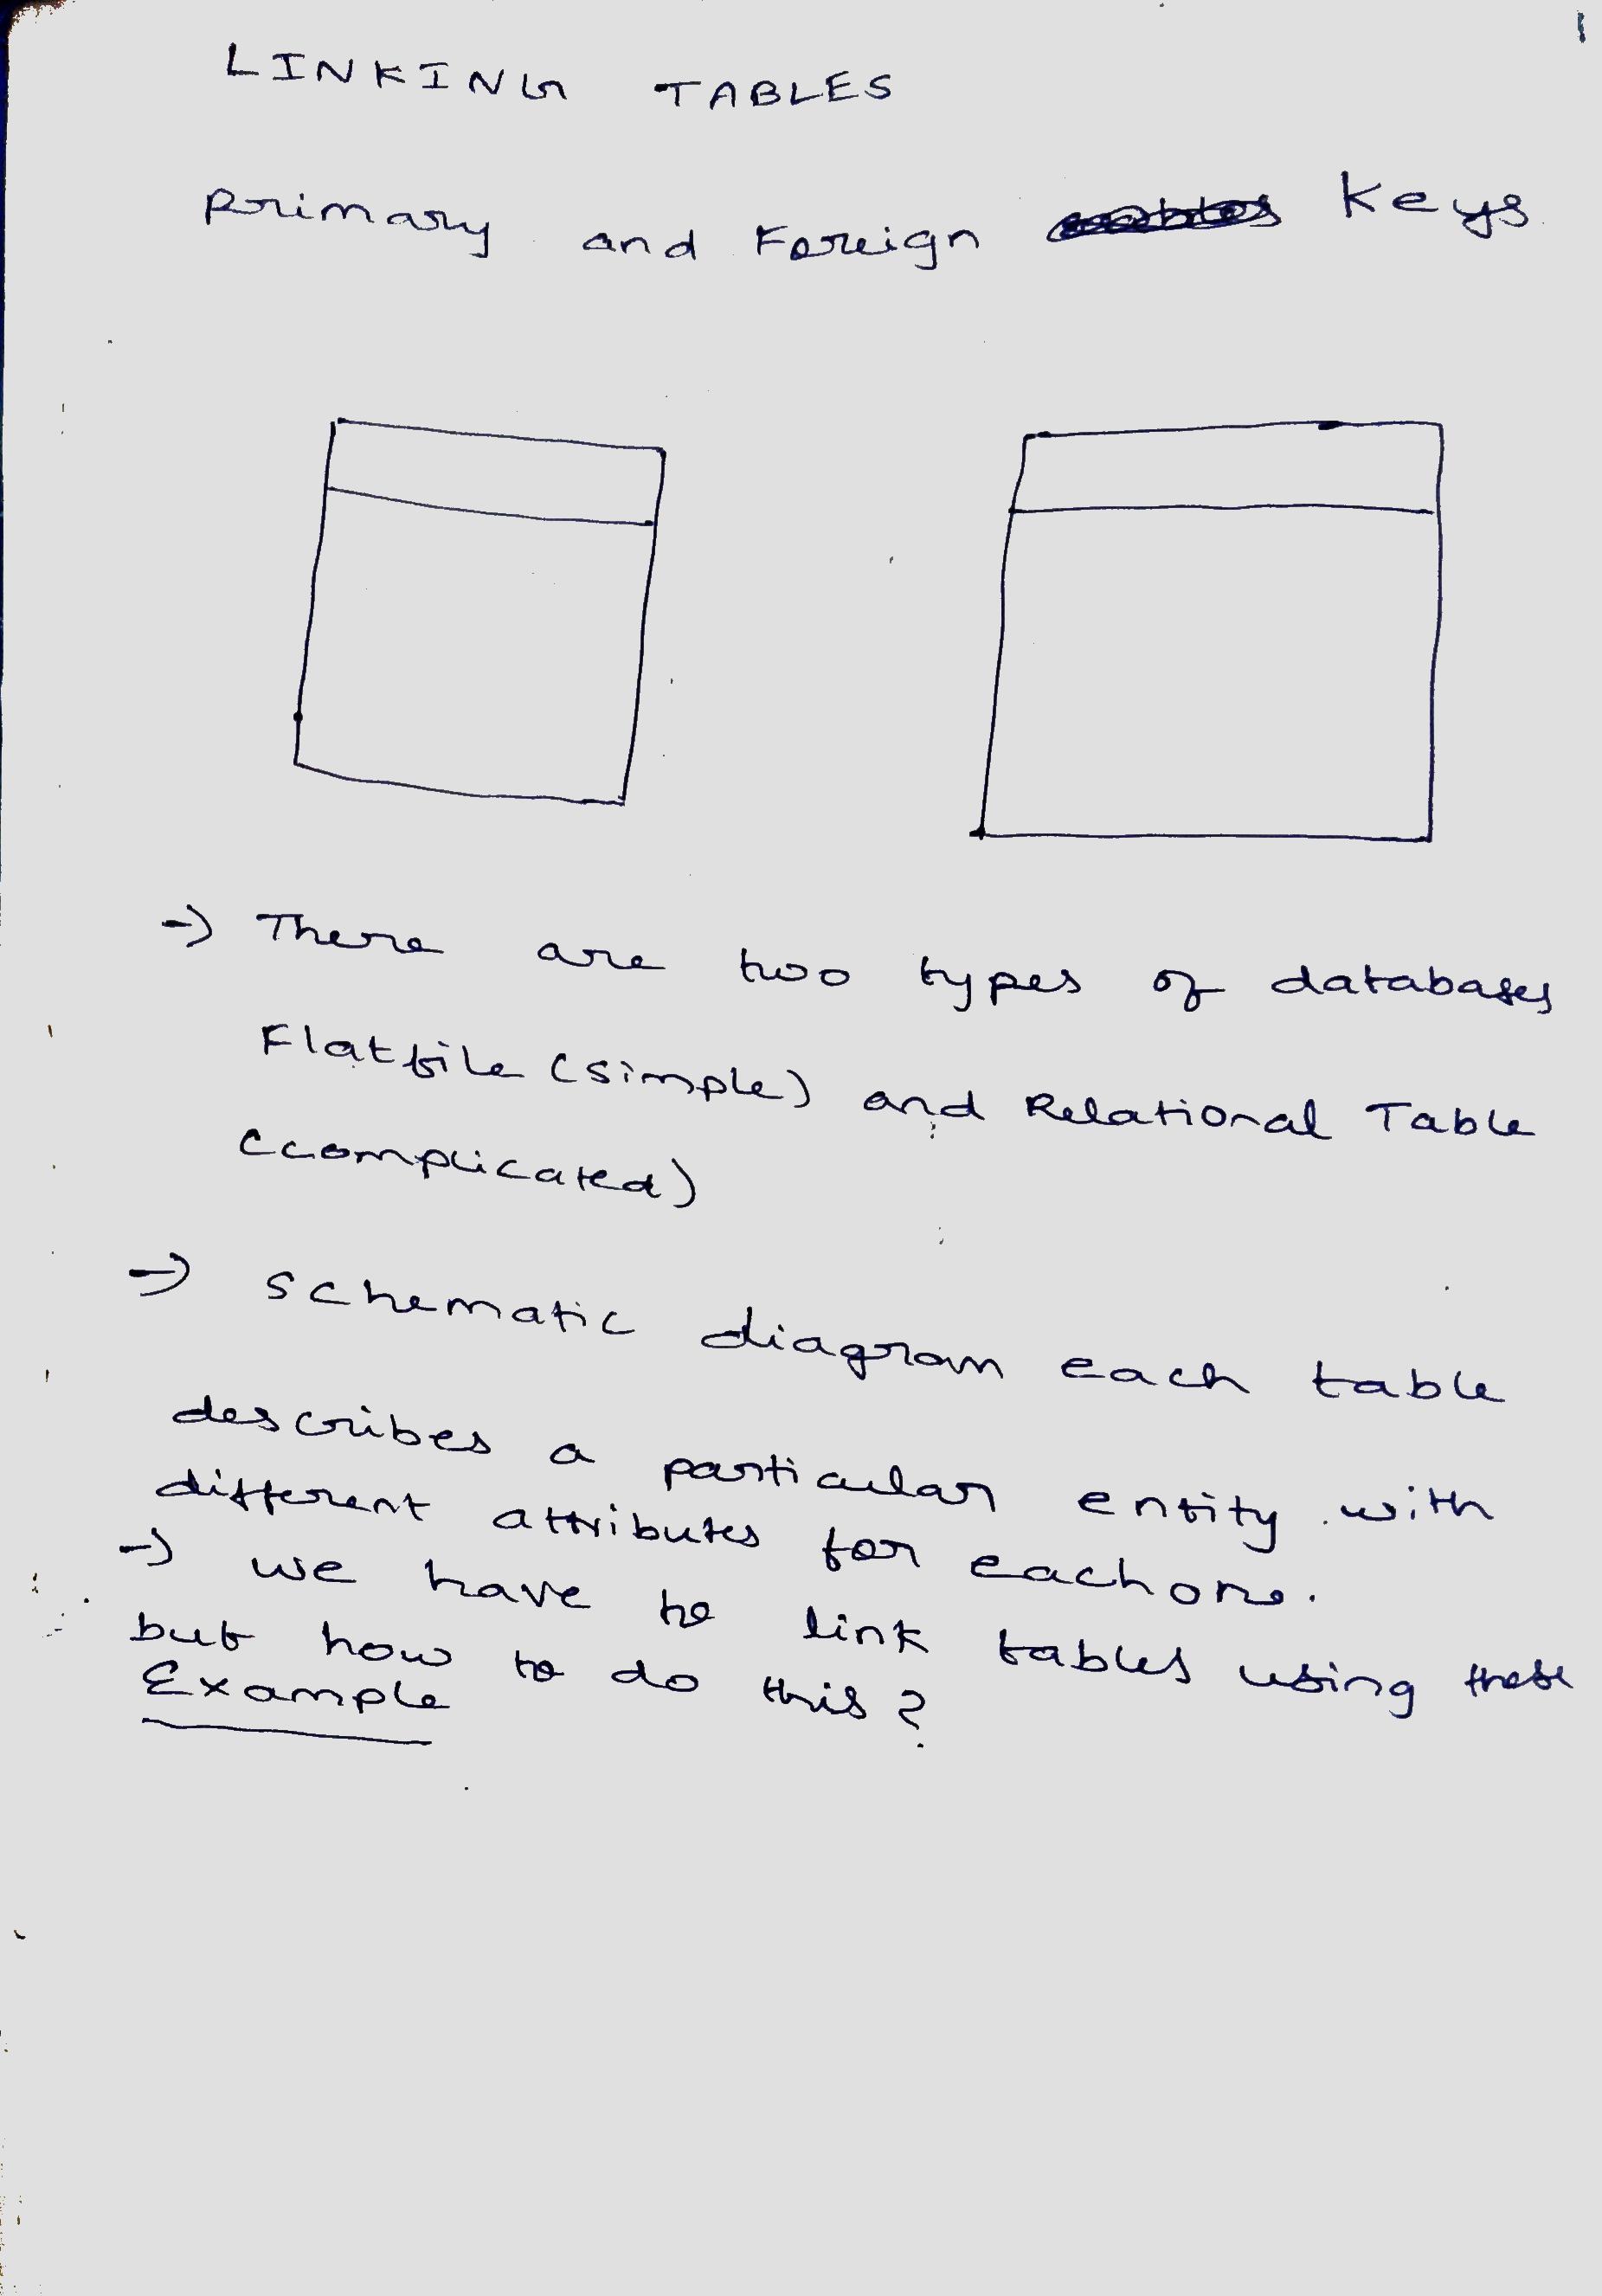 1
LINKING TABLES
Primary and Foreign Keys
→ There are two types of databases
Flatfile (simple) and Relational Table
(complicated)
→ schematic diagram each table
describes a particular entity with
different attributes for each one.
→ we have to link tables using these
but how to do this?
Example